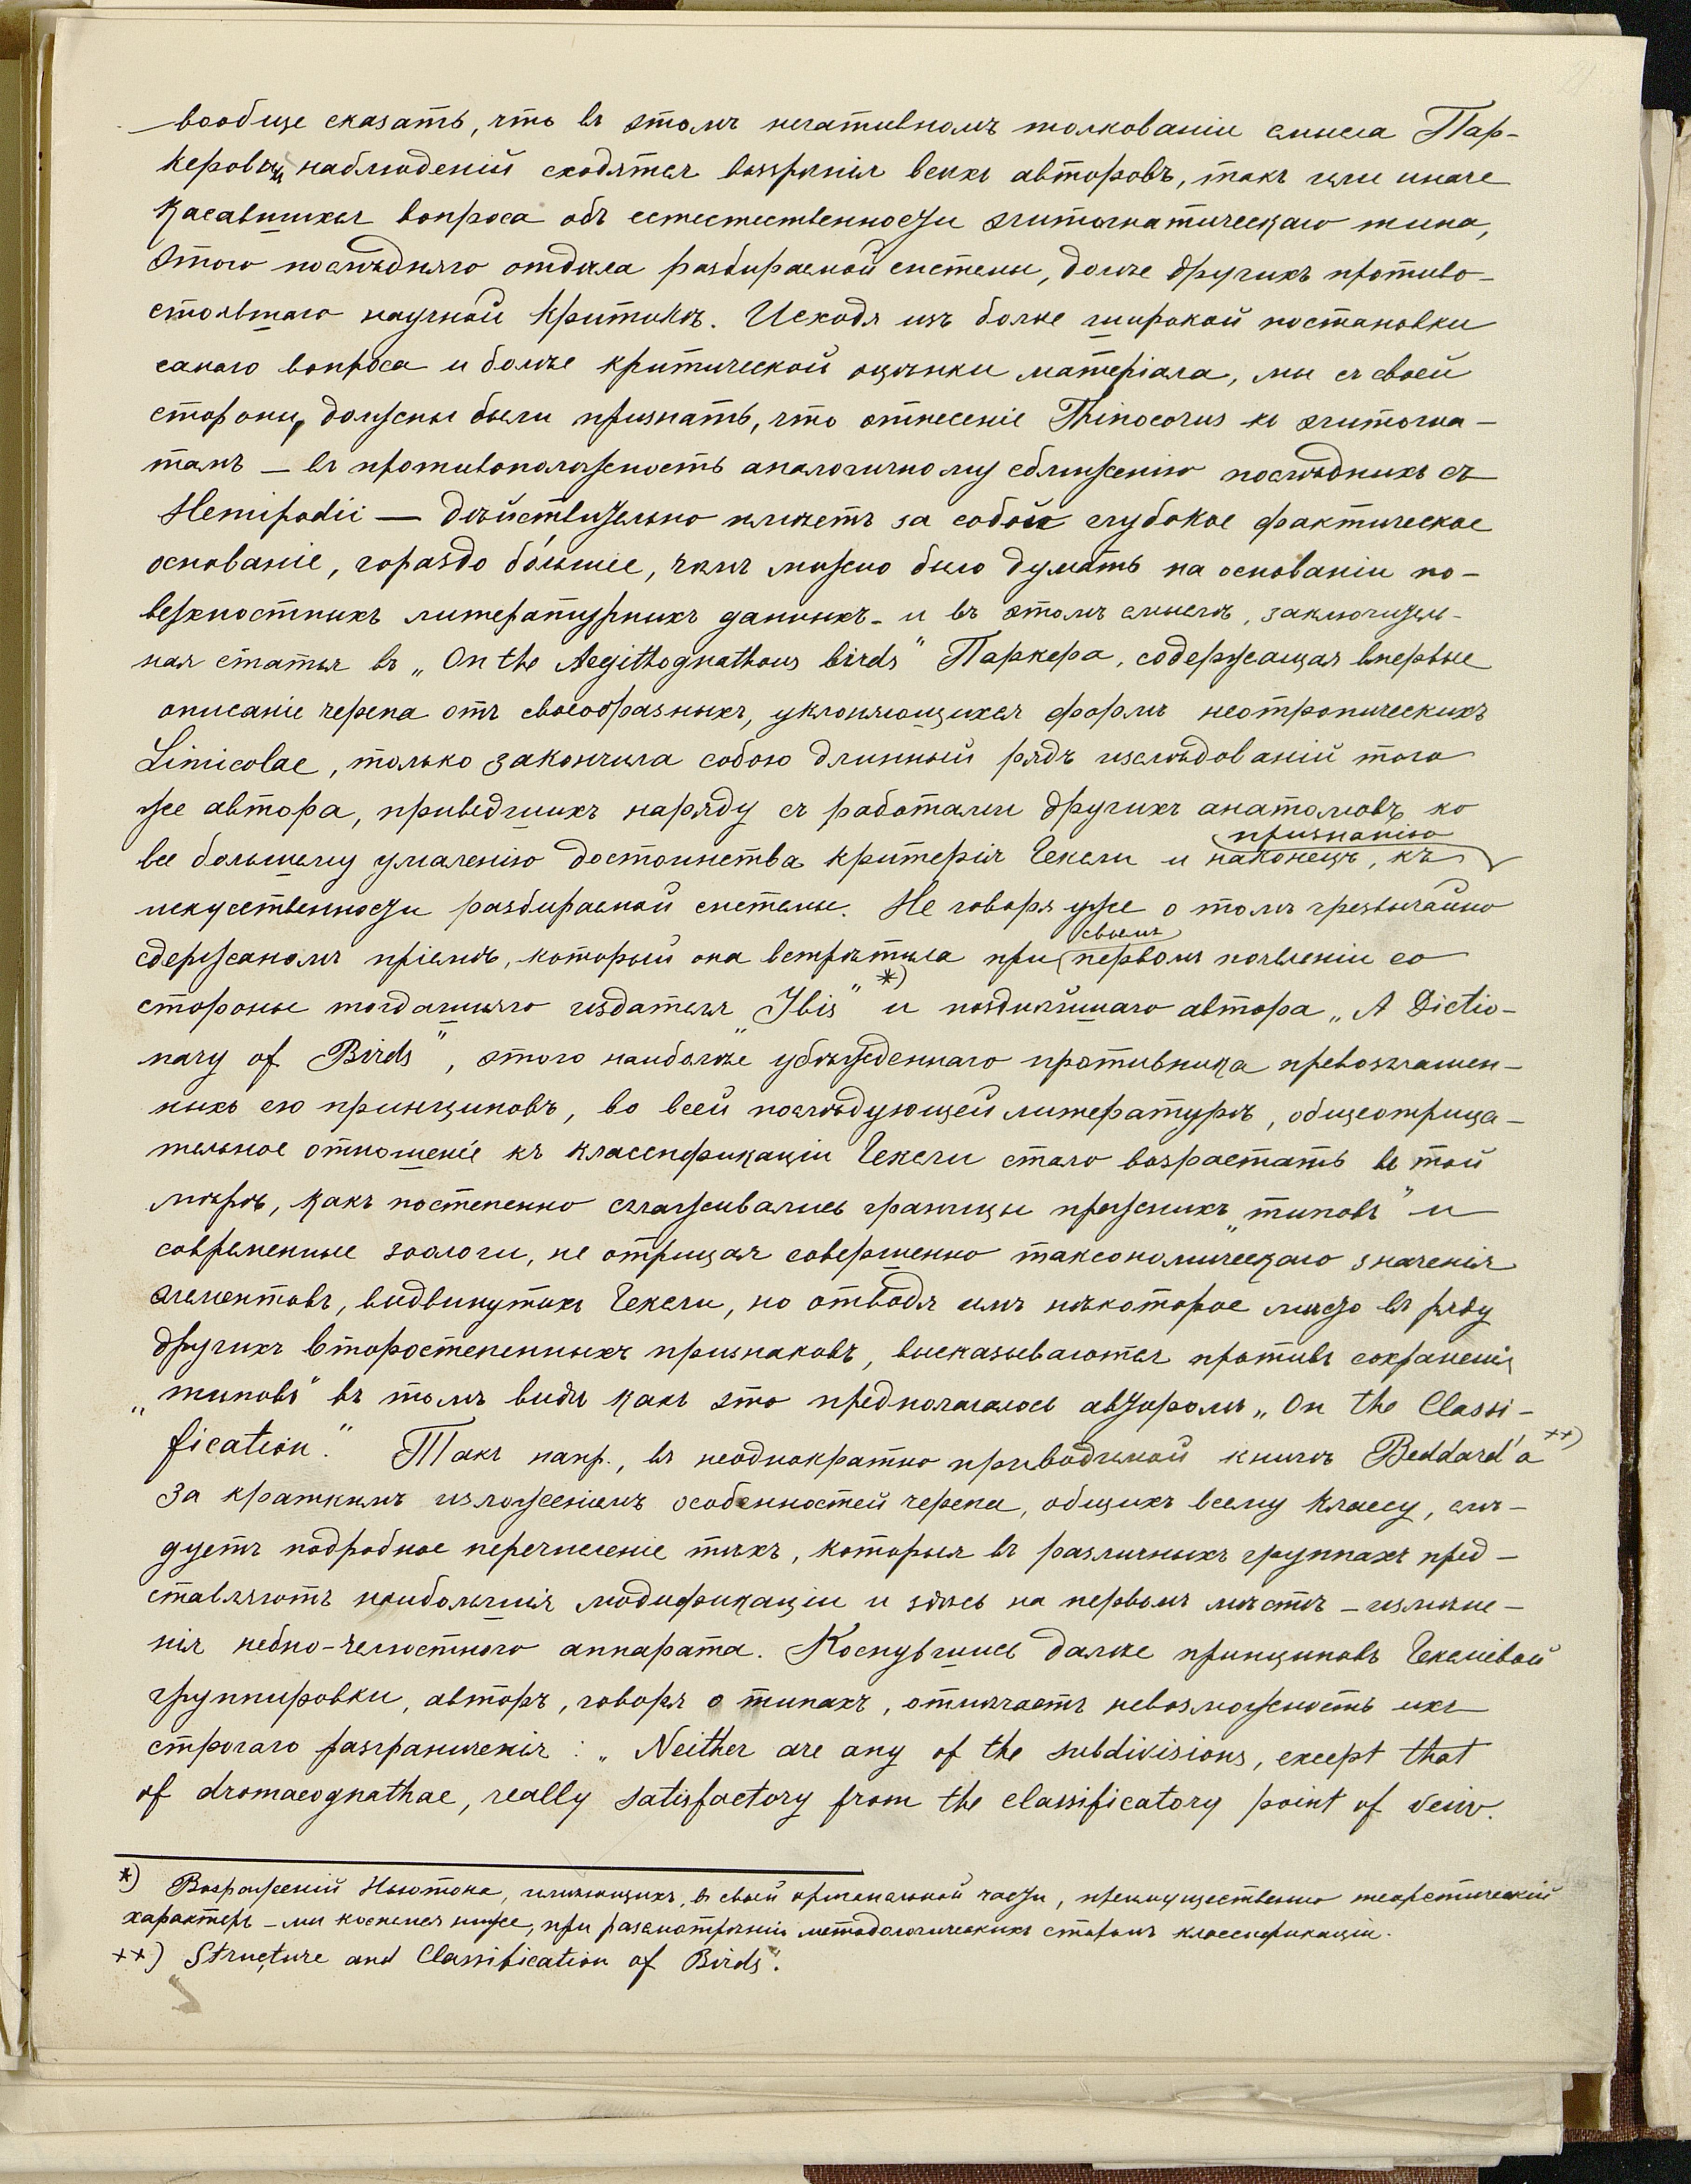 вообще сказать, что въ этомъ негативномъ толкованіи смысла Пар-
керовыхъ наблюденій сходятся воззрѣнія всѣхъ авторовъ, такъ или иначе
касавшихся вопроса объ естественности эгитогнатическаго типа,
этого послѣдняго отдѣла разбираемой системы, долѣе другихъ противо-
стоявшаго научной критикѣ. Исходя изъ болѣе широкой постановки
самаго вопроса и болѣе критической оцѣнки матеріала, мы съ своей
стороны, должны были признать, что отнесеніе Thinocorus къ эгитогна-
тамъ — въ противоположность аналогичному сближенію послѣднихъ съ
Hemipodii — дѣйствительно имѣетъ за собой глубокое фактическое
основаніе, гораздо бо́льшее, чѣмъ можно было думать на основаніи по-
верхностныхъ литературныхъ данныхъ - и въ этомъ смыслѣ, заключитель-
ная статья въ „On the Aegithognathous birds" Паркера, содержащая впервые
описаніе черепа отъ своеобразныхъ, уклоняющихся формъ неотропическихъ
Limicolae, только закончила собою длинный рядъ изслѣдованій того
же автора, приведшихъ наряду съ работами другихъ анатомовъ ко
все большему умаленію достоинства критерія Гексли и наконецъ, къ признанію
искусственности разбираемой системы. Не говоря уже о томъ чрезвычайно
сдержаномъ пріемѣ, который она встрѣтила при своемъ первомъ появленіи со
стороны тогдашняго издателя „Ibis" *) и позднѣйшаго автора „A Dictio-
nary of Birds", этого наиболѣе убѣжденнаго противника превозглашен-
ныхъ ею принциповъ, во всей послѣдующей литературѣ, общеотрица-
тельное отношеніе къ классификаціи Гексли стало возрастать въ той
мѣрѣ, какъ постепенно сглаживались границы прежнихъ „типовъ" и
современные зоологи, не отрицая совершенно таксономическаго значенія
элементовъ, выдвинутыхъ Гексли, но отводя имъ нѣкоторое мѣсто въ ряду
другихъ второстепенныхъ признаковъ, высказываются противъ сохраненія
„типовъ" въ томъ видѣ какъ это предполагалось авторомъ „On the Classi-
fication." Такъ напр., въ неоднократно приводимой книгѣ Beddard'a ××)
за краткимъ изложеніемъ особенностей черепа, общихъ всему классу, слѣ-
дуетъ подробное перечисленіе тѣхъ, которыя въ различныхъ группахъ пред-
ставляютъ наибольшія модификаціи и здѣсь на первомъ мѣстѣ - измѣне-
нія небно-челюстного аппарата. Коснувшись далѣе принциповъ Гекслівой
группировки, авторъ, говоря о типахъ, отмѣчаетъ невозможность ихъ
строгаго разграниченія: „Neither are any of the subdivisions, except that
of dromaeognathae, really satisfactory from the classificatory point of veiw.
*) Возраженій Ньютона, имѣющихъ, въ своей оригинальной части, преимущественно теоретическій
характеръ - мы коснемся ниже, при разсмотрѣніи методологическихъ сторонъ классификаціи.
××) Structure and Classification of Birds".